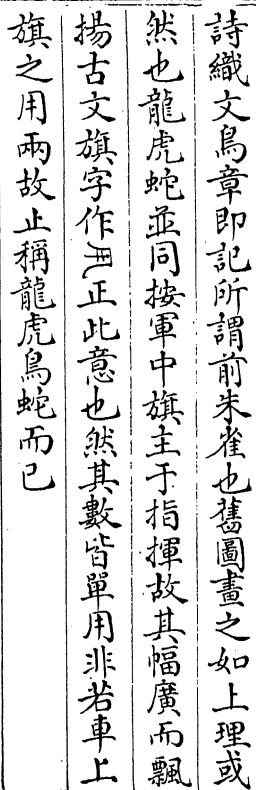 詩織文鳥章即記所謂前朱雀也舊圖畫之如上理或
然也龍虎蛇並同按軍中旗主于指揮故其幅廣而飄
揚古文旗字作正此意也然其數皆單用非若車上
旗之用兩故止稱龍虎鳥蛇而已